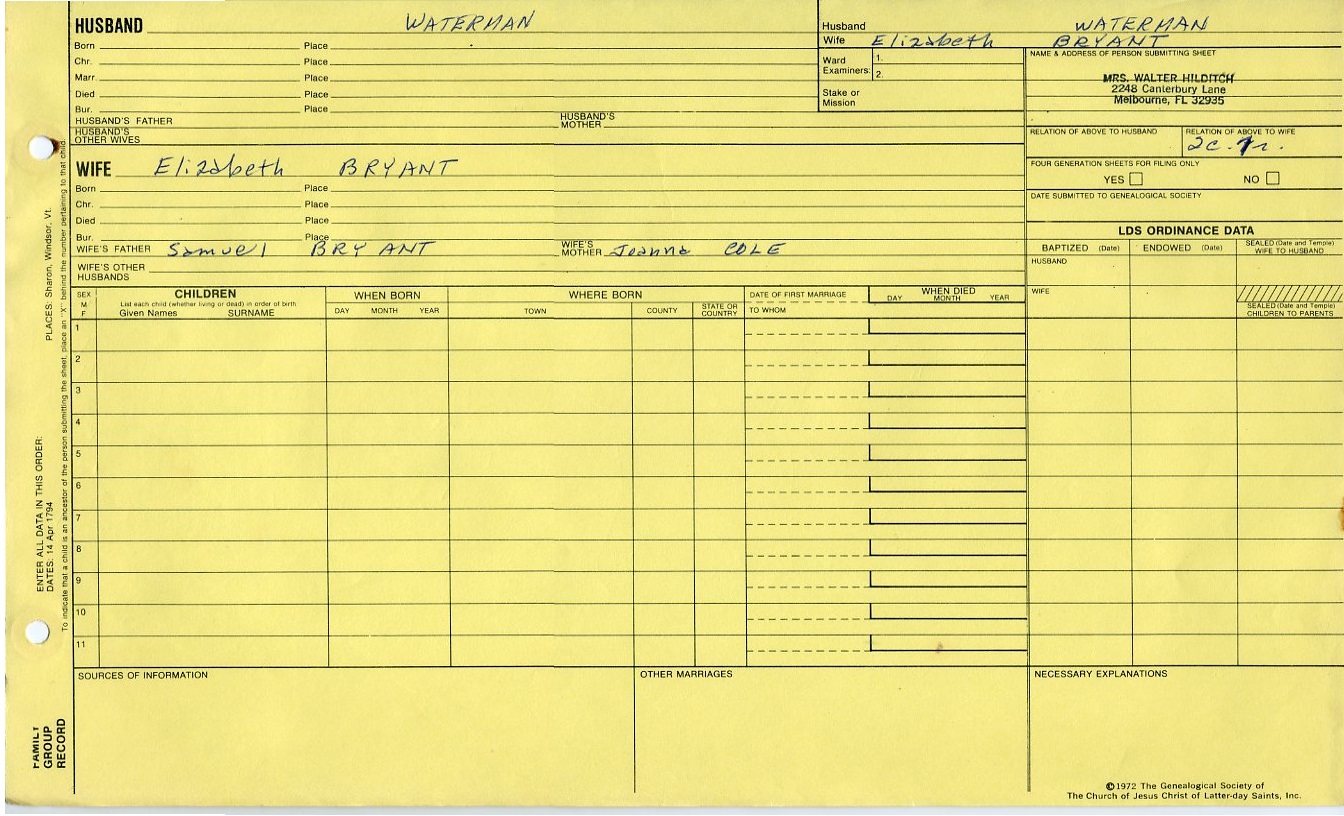 HUSBAND WATERMAN
Born Place
Chr. Place
Marr. Place
Died Place
Bur. Place
HUSBAND'S FATHER HUSBAND'S MOTHER
HUSBAND'S OTHER WIVES
Husband WATERMAN
Wife Elizabeth BRYANT
Ward Examiners: 1.
2.
Stake or Mission
NAME & ADDRESS OF PERSON SUBMITTING SHEET
MRS. WALTER HILDITCH
2248 Canterbury Lane
Melbourne, FL 32935
RELATION OF ABOVE TO HUSBAND RELATION OF ABOVE TO WIFE
2c.
FOUR GENERATION SHEETS FOR FILING ONLY
YES NO
DATE SUBMITTED TO GENEALOGICAL SOCIETY
WIFE Elizabeth BRYANT
Born Place
Chr. Place
Died Place
Bur. Place
WIFE'S FATHER Samuel BRYANT WIFE'S MOTHER Joanna COLE
WIFE'S OTHER HUSBANDS
LDS ORDINANCE DATA
BAPTIZED (Date) ENDOWED (Date) SEALED (Date and Temple) WIFE TO HUSBAND
HUSBAND
WIFE
SEALED (Date and Temple) CHILDREN TO PARENTS
SEX M F
CHILDREN
List each child (whether living or dead) in order of birth
Given Names SURNAME
WHEN BORN
DAY MONTH YEAR
WHERE BORN
TOWN COUNTY STATE OR COUNTRY
DATE OF FIRST MARRIAGE
TO WHOM
WHEN DIED
DAY MONTH YEAR
1
2
3
4
5
6
7
8
9
10
11
SOURCES OF INFORMATION OTHER MARRIAGES NECESSARY EXPLANATIONS
©1972 The Genealogical Society of
The Church of Jesus Christ of Latter-day Saints, Inc.
FAMILY GROUP RECORD
ENTER ALL DATA IN THIS ORDER:
DATES: 14 Apr 1794
PLACES: Sharon, Windsor, Vt.
To indicate that a child is an ancestor of the person submitting the sheet, place an "X" behind the number pertaining to that child.